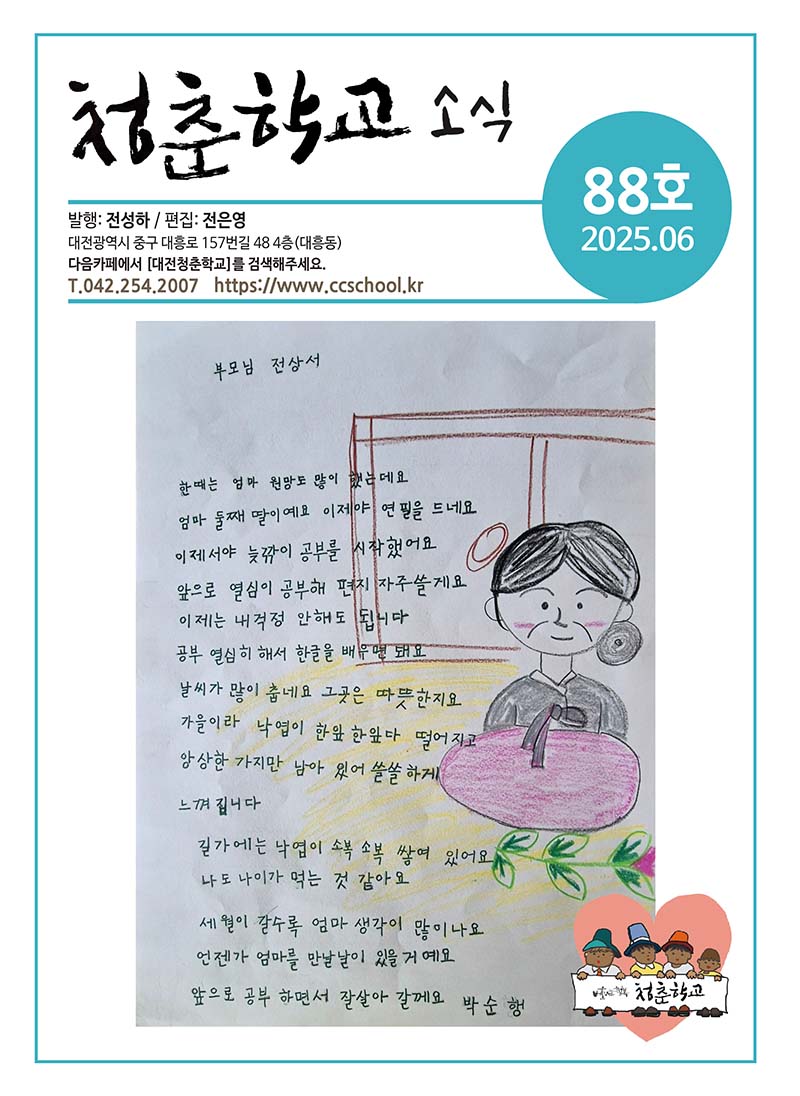 청춘학교 소식
88호
2025.06
발행: 전성하 / 편집: 전은영
대전광역시 중구 대흥로 157번길 48 4층(대흥동)
다음카페에서 [대전청춘학교]를 검색해주세요.
T.042.254.2007 https://www.ccschool.kr
부모님 전상서
한때는 엄마 원망도 많이 했는데요
엄마 둘째 딸이예요 이제야 연필을 드네요
이제서야 늦깎이 공부를 시작했어요
앞으로 열심이 공부해 편지 자주쓸게요
이제는 내걱정 안해도 됩니다
공부 열심히 해서 한글을 배우면 돼요
날씨가 많이 춥네요 그곳은 따뜻한지요
가을이라 낙엽이 한잎 한잎다 떨어지고
앙상한 가지만 남아 있어 쓸쓸하게
느껴집니다
길가에는 낙엽이 소복 소복 쌓여 있어요
나도 나이가 먹는 것 같아요
세월이 갈수록 엄마 생각이 많이나요
언젠가 엄마를 만날날이 있을거예요
앞으로 공부 하면서 잘살아 갈께요 박순행
청춘학교